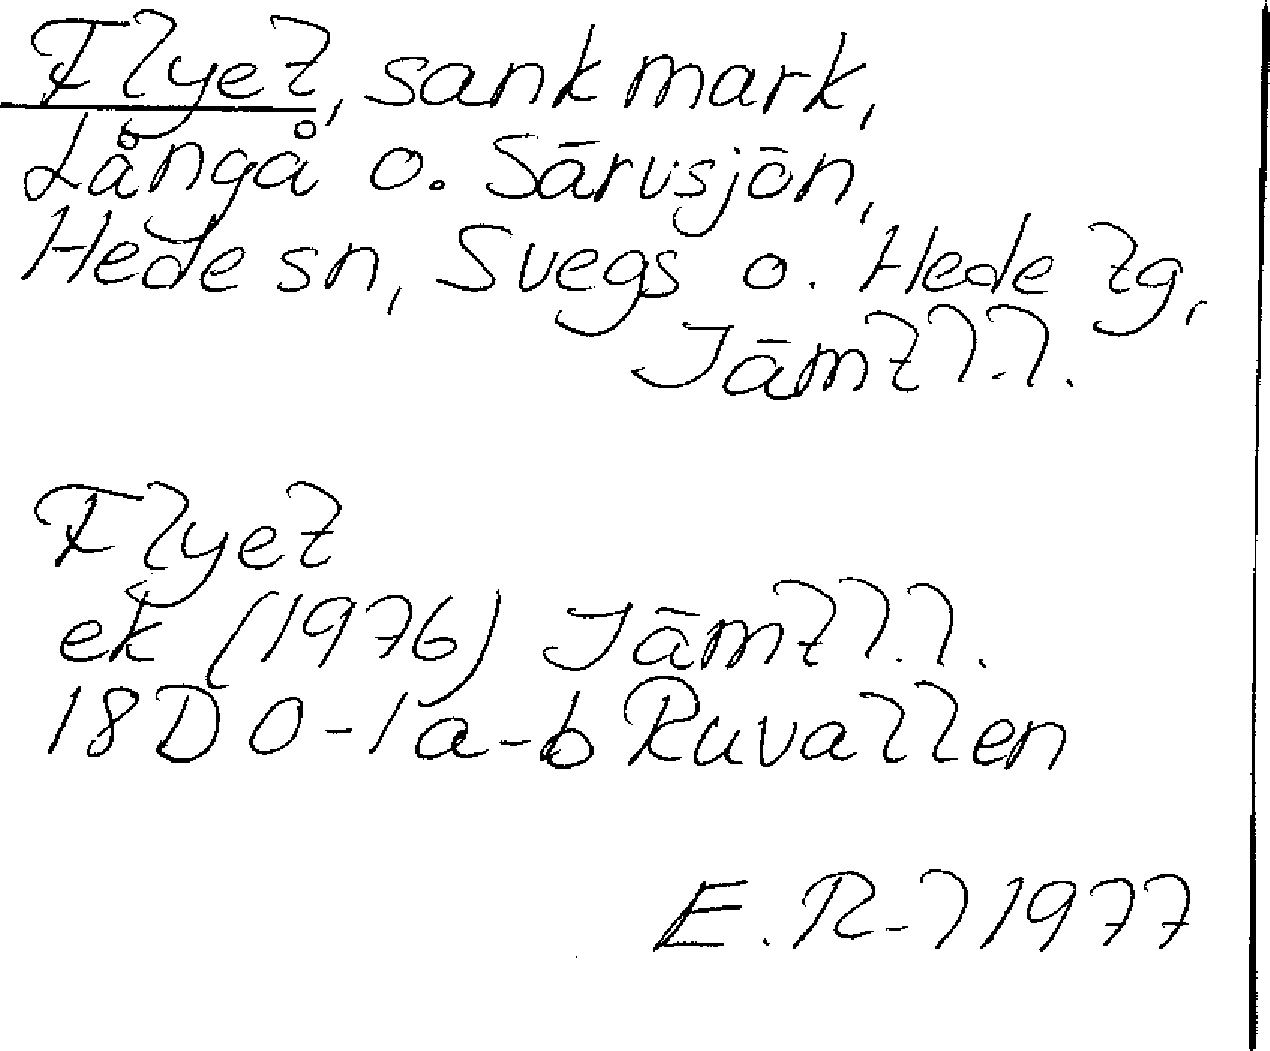 Flyet, sankmark,
Långå o. Särvsjön,
Hede sn, Svegs o. Hede tg,
Jämtl.l.
Flyet
ek (1976) Jämtl.l.
18D 0-1a-b Ruvallen
E. R-l 1977